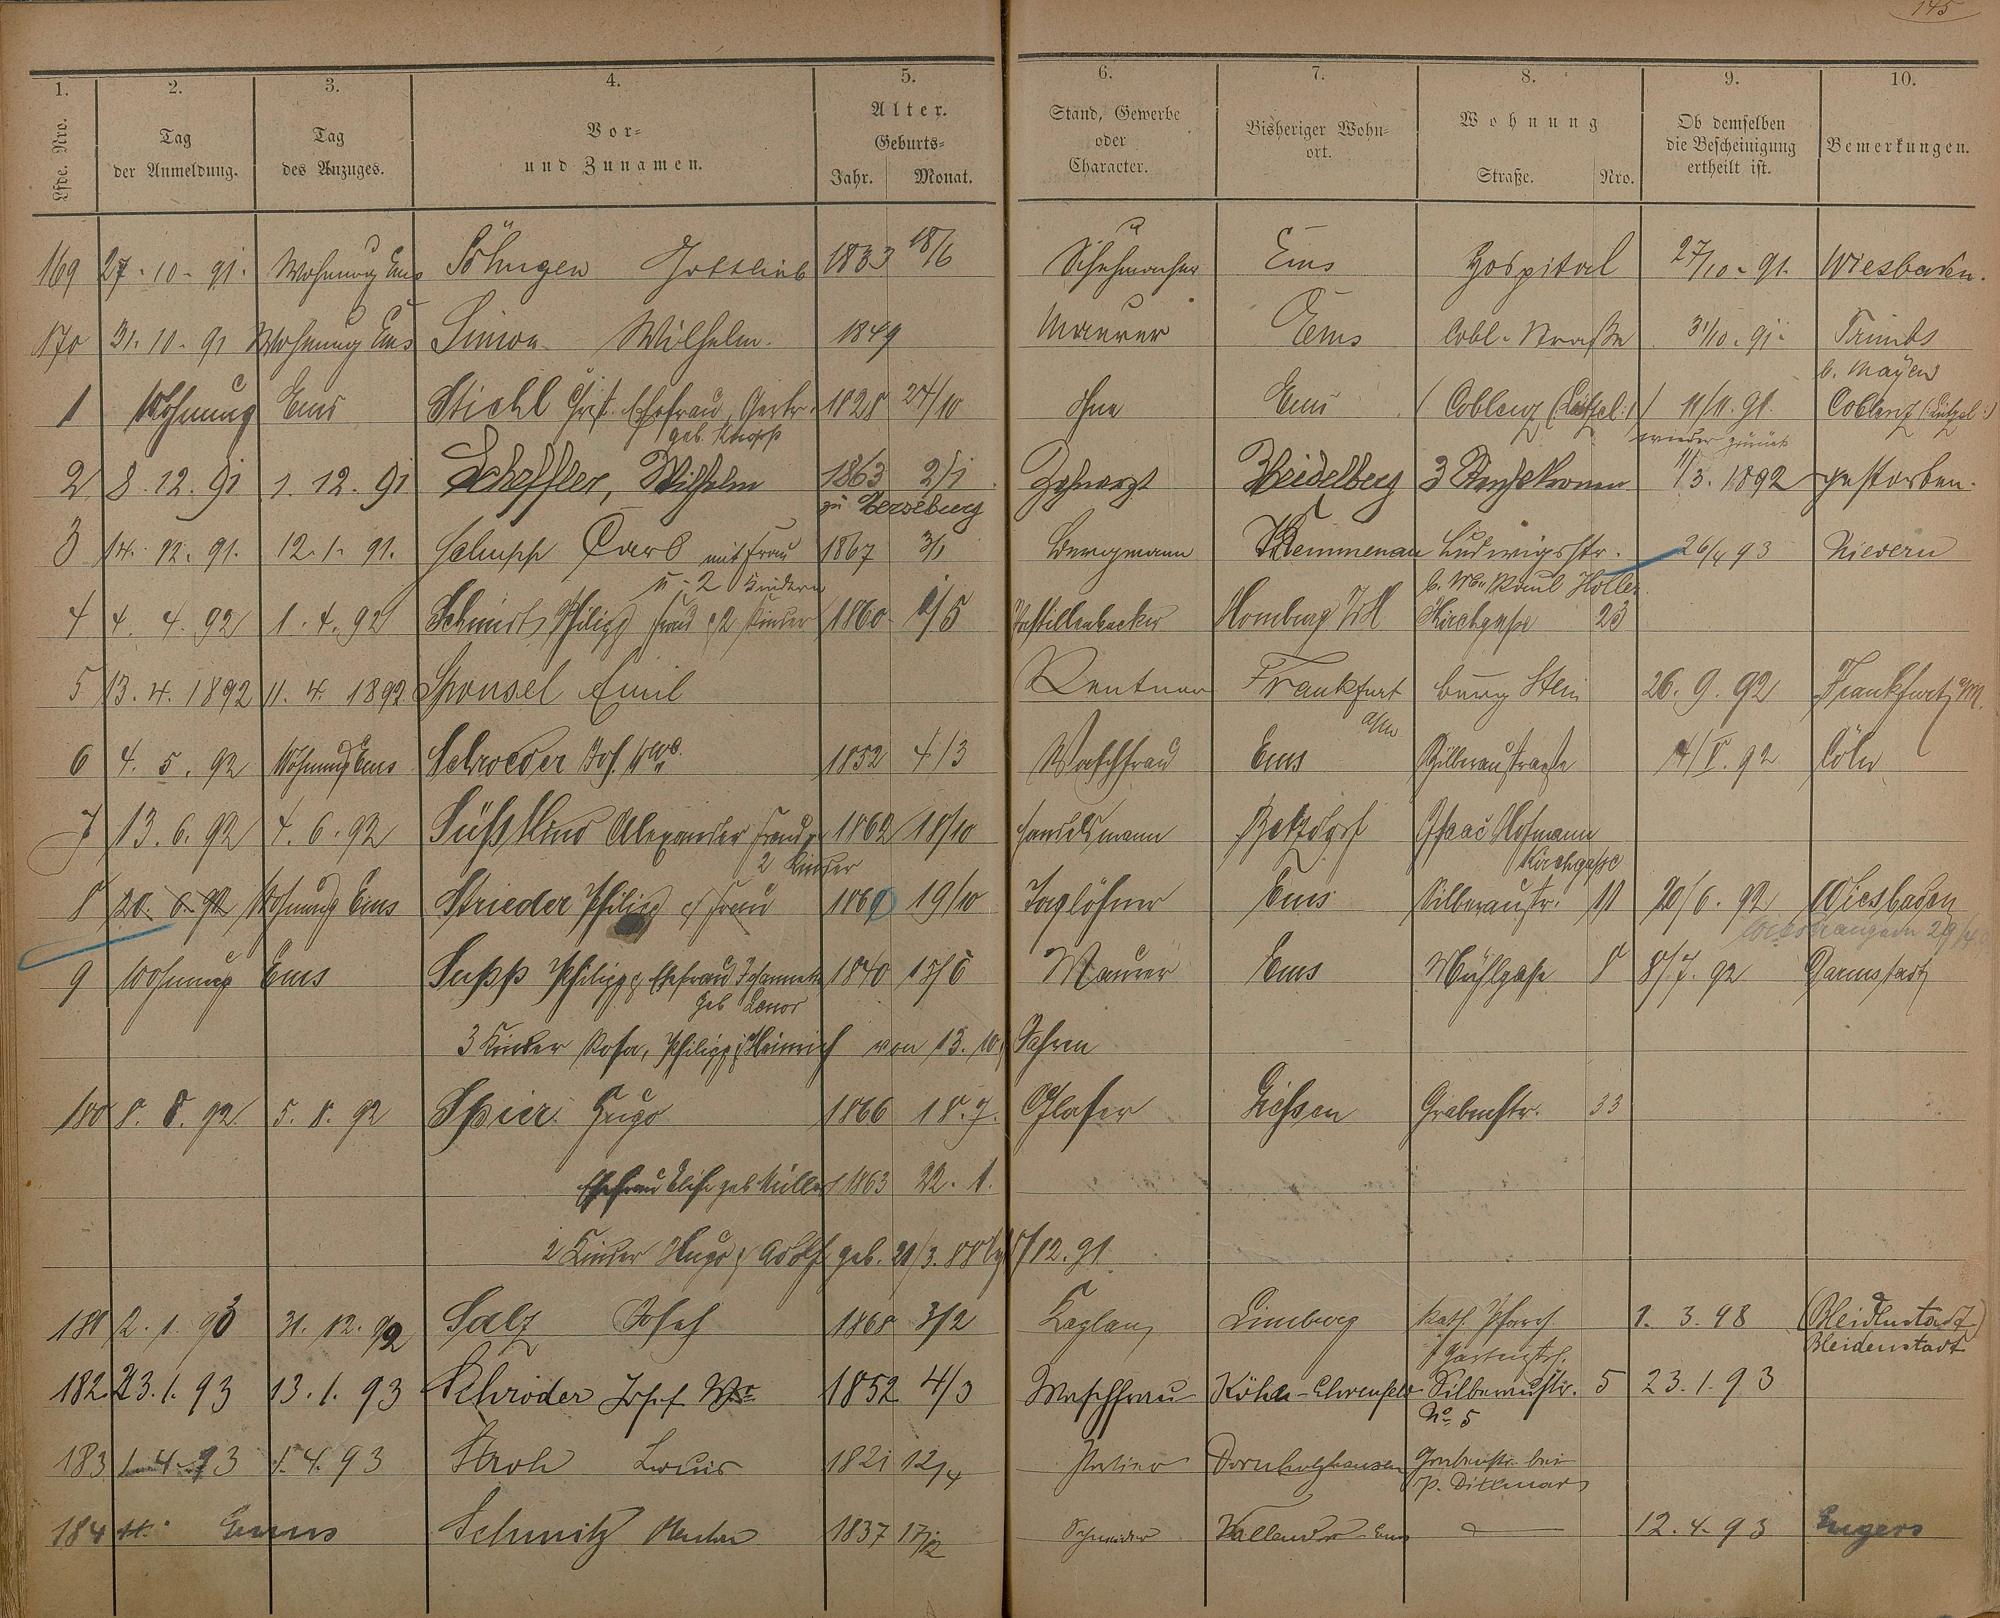 145
1. 2. 3. 4. 5. 6. 7. 8. 9. 10.
Lfde. Nro. Tag der Anmeldung. Tag des Anzuges. Vor- und Zunamen. Alter. Geburts- Jahr. Monat. Stand, Gewerbe oder Character. Bisheriger Wohn- ort. Wohnung Straße. Nro. Ob demselben die Bescheinigung ertheilt ist. Bemerkungen.
169 27.10.91. Wohnung Ems Söhngen Gottlieb 1833 18/6 Schuhmacher Ems Hospital 27/10.91. Wiesbaden.
170 31.10.91 Wohnung Ems Simon Wilhelm. 1849 Maurer Ems Cobl. Straße 31/10.91. Trimbs
b. Mayen
1 Wohnung Ems Stiehl Ehefrau, 1828 24/10 ohne Ems Coblenz (Lützel:) 11/11.91. Coblenz (:Lützel:)
geb. Knopp wieder zurück
2 8.12.91 1.12.91 Scheffler, Wilhelm 1863 2/1 Zahnarzt Heidelberg 3 11/3.1892 gestorben.
zu Merseburg
3 14.12.91. 12.1.91. Schupp Carl mit Frau 1867 3/1 Bergmann Kemmenau Ludwigstr. 26/4 93 Nievern
u. 2 Kindern
4 4.4.92 1.4.92 Schmidt, Philipp Frau & 2 Kinder 1860 1/5 Pastillenbäcker Homburg Kirchgasse 23
5 13.4.1892 11.4.1892 Sponsel Emil Rentner Frankfurt Burg Stein 26.9.92 Frankfurt a/M.
a/M
6 4.5.92 Wohnung Ems Schroeder Jos. Wwe. 1852 4/3 Waschfrau Ems Silberaustraße 4/V.92 Cöln
7 13.6.92 4.6.92 Süßkind Alexander Frau & 1862 18/10 Handelsmann Betzdorf Isaac Hofmann
2 Kinder Kirchgasse
8 20.6.92 Wohnung Ems Strieder Philipp & Frau 1860 19/10 Taglöhner Ems Silberaustr. 11 20/6.92 Wiesbaden
9 Wohnung Ems Supp Philipp & Ehefrau 1840 15/6 Maurer Ems Mühlgasse 8 8/7.92 Darmstadt
geb
3 Kinder Rosa, Philipp & Heinrich von 13. 10 Jahren
180 8.8.92. 5.8.92 Spier Hugo 1866 18.7. Glaser Gießen Grabenstr. 33
Ehefrau Elise geb Müller 1863 22.1.
2 Kinder Hugo & Adolf geb. 21/3.88 12.91.
181 2.1.93 31.12.92 Salz Josef 1868 3/2 Kaplan Limburg Kath. Pfarrh. 1.3.98 (Bleidenstadt)
Gartenstr. Bleidenstadt
182. 23.1.93 13.1.93 Schröder Josef Wwe 1852 4/3 Waschfrau Köln-Ehrenfeld Silberaustr. 5 23.1.93
No. 5
183 1.4.93 1.4.93 Stroh Louis 1821 12/4 Portier Dornholzhausen Grabenstr. bei
P. Dittmar
184 Ems Schmitz 1837 17/12 Schneider Vallendar-Ems 12.4.93 Engers